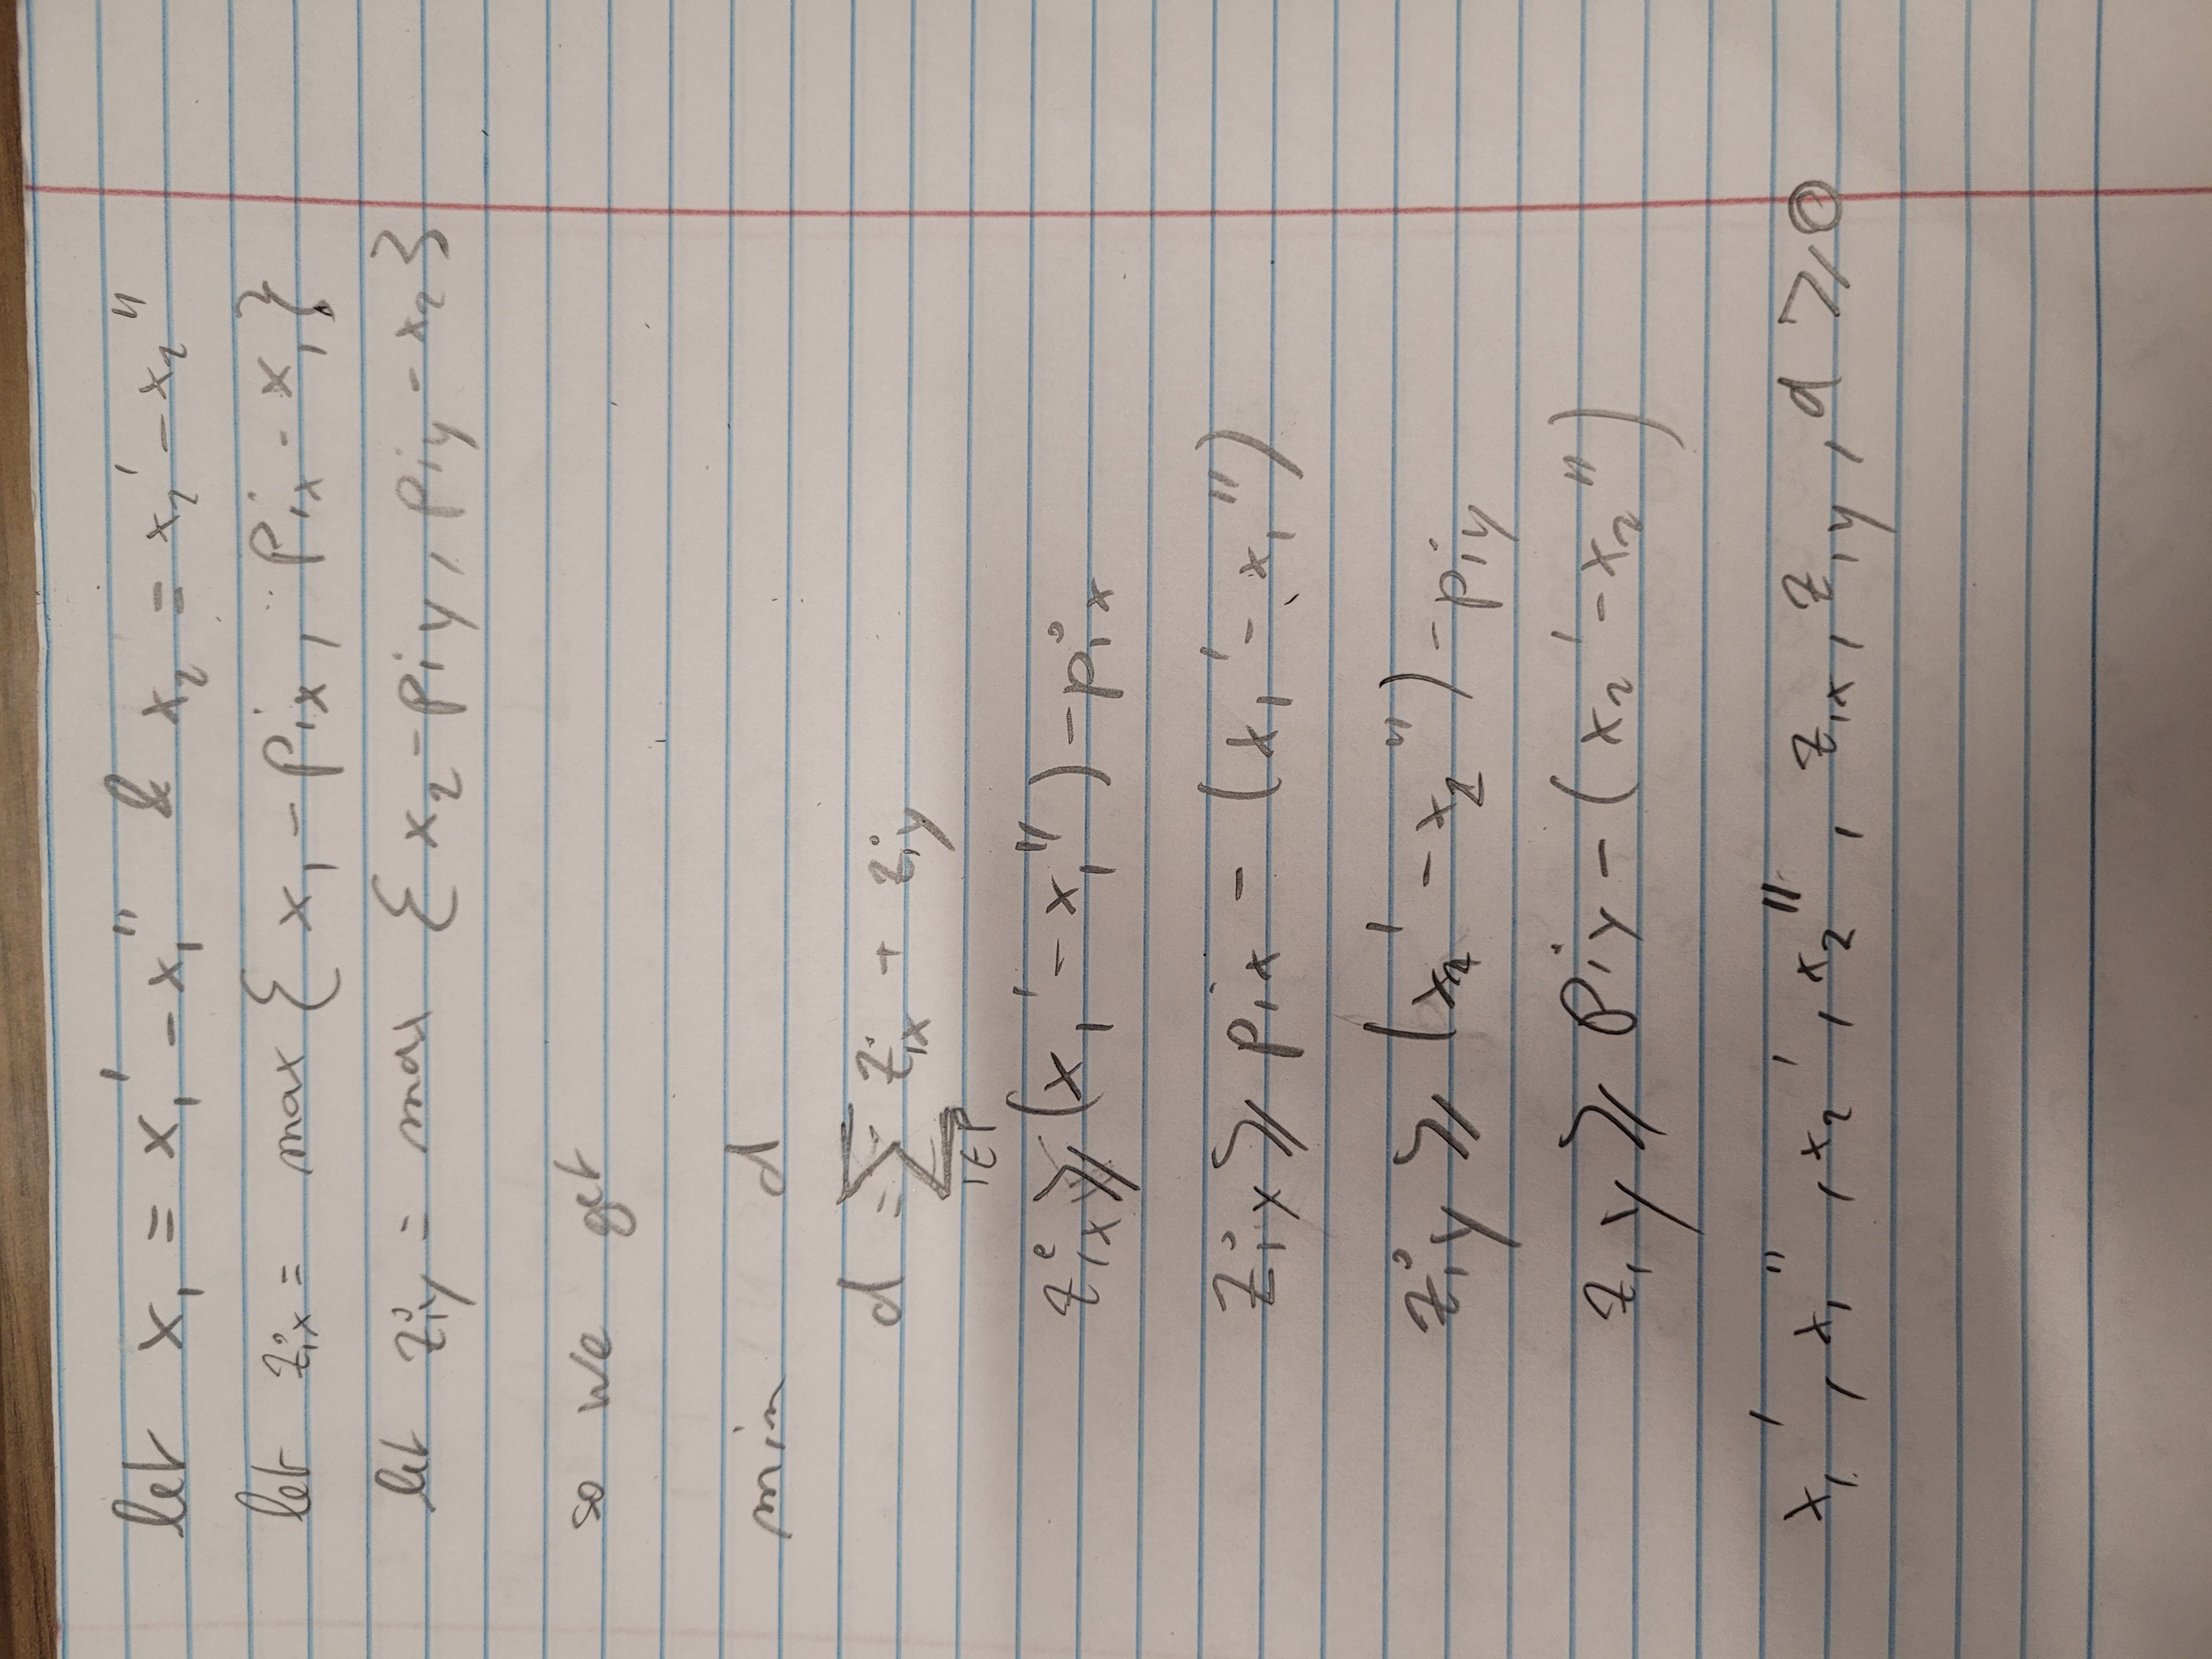 let x₁ = x₁' - x₁'' & x₂ = x₂' - x₂''
let zᵢₓ = max { x₁ - pᵢₓ, pᵢₓ - x₁ }
let z_iy = max { x₂ - p_iy, p_iy - x₂ }
so we get
min d
d = Σ_{i∈P} zᵢₓ + z_iy
zᵢₓ ⩾ (x₁' - x₁'') - pᵢₓ
zᵢₓ ⩾ pᵢₓ - (x₁' - x₁'')
z_iy ⩾ (x₂' - x₂'') - p_iy
z_iy ⩾ p_iy - (x₂' - x₂'')
x₁', x₁'', x₂', x₂'', zᵢₓ, z_iy, d ⩾ 0